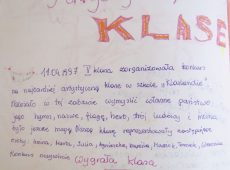 KLASE
11.04.1997 V klasa zorganizowała konkurs
na najbardziej artystyczną klasę w szkole
Należało w tej zabawie wymyślić własne państwo
jego hymn, nazwę, flagę, herb, strój ludowy i można
było jeszcze mapę. Naszą klasę reprezentowały następujące
osoby: Anna, Marta, Julia, Agnieszka,
Konkurs oczywiście wygrała klasa